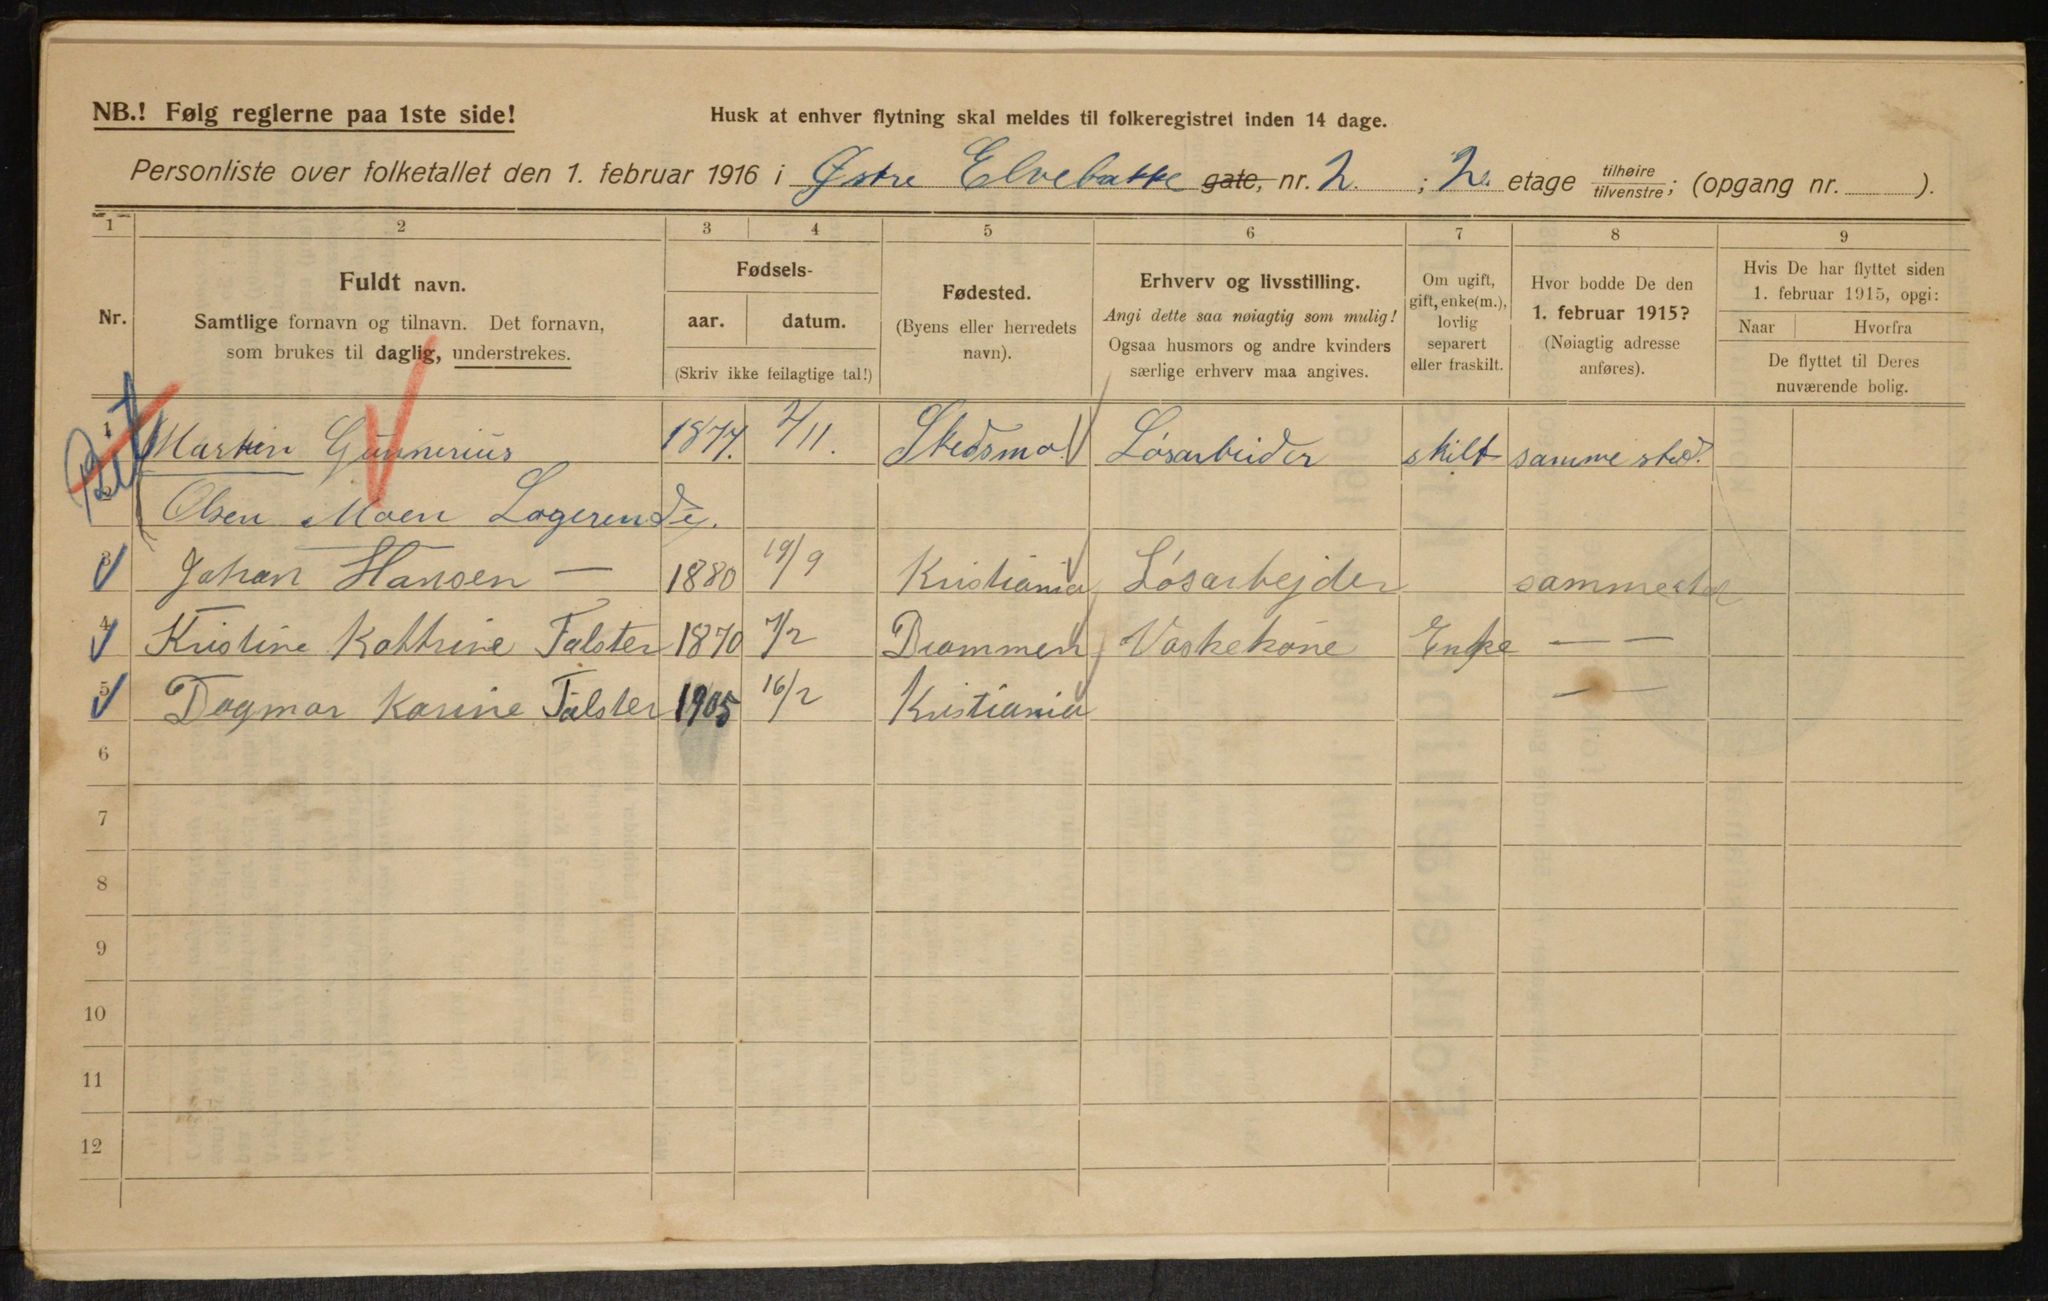 NB.! Følg reglerne paa 1ste side!
Husk at enhver flytning skal meldes til folkeregistret inden 14 dage.
Personliste over folketallet den 1. februar 1916 i Østre Elvebakke gate, nr. 2. ; 2. etage tilhøire tilvenstre; (opgang nr. ).
1 2 3 4 5 6 7 8 9
Nr.
Fuldt navn.
Samtlige fornavn og tilnavn. Det fornavn,
som brukes til daglig, understrekes.
Fødsels-
aar. datum.
(Skriv ikke feilagtige tal!)
Fødested.
(Byens eller herredets
navn).
Erhverv og livsstilling.
Angi dette saa nøiagtig som mulig!
Ogsaa husmors og andre kvinders
særlige erhverv maa angives.
Om ugift,
gift, enke(m.),
lovlig
separert
eller fraskilt.
Hvor bodde De den
1. februar 1915?
(Nøiagtig adresse
anføres).
Hvis De har flyttet siden
1. februar 1915, opgi:
Naar Hvorfra
De flyttet til Deres
nuværende bolig.
1 Martin Gunnerius 1877. 2/11. Skedsmo. Løsarbeider skilt samme sted.
Olsen Moen Logerende.
3 Johan Hansen — 1880 19/9 Kristiania Løsarbejder sammested
4 Kristine Kathrine Falster 1870 7/2 Drammen Vaskekone Enke — —
5 Dagmar Karine Falster 1905 16/2 Kristiania — —
6
7
8
9
10
11
12